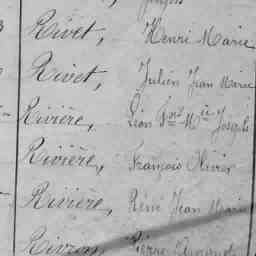 Rivet, Henri Marie
Rivet, Julien Jean Marie
Rivière, Léon Fois Mie Joseph
Rivière, François Olivier
Rivière, René Jean Marie
Pierre